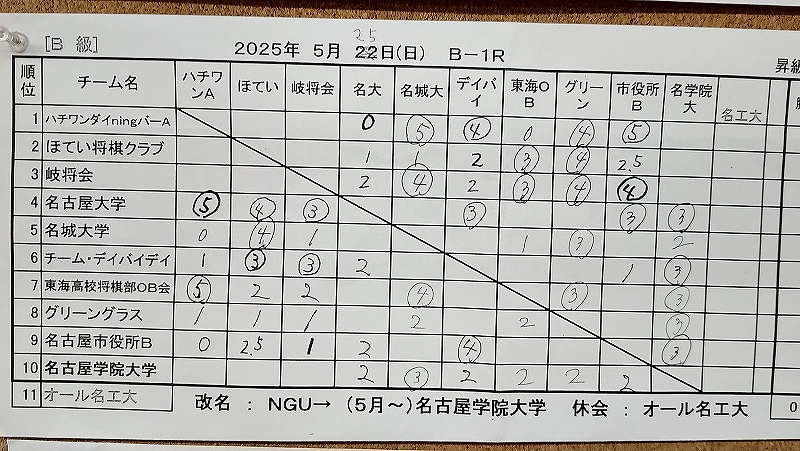 [B 級] 2025年 5月 22日(日) B-1R 25
昇級
順位 チーム名 ハチワンA ほてい 岐将会 名大 名城大 デイバイ 東海OB グリーン 市役所B 名学院大 名工大
1 ハチワンダイningバーA 0 ⑤ ④ 0 ④ ⑤
2 ほてい将棋クラブ 1 1 2 ③ ④ 2.5
3 岐将会 2 ④ 2 ③ ④ ④
4 名古屋大学 ⑤ ④ ③ ③ ③ ③
5 名城大学 0 ④ 1 1 ③ 2
6 チーム・デイバイデイ 1 ③ ③ 2 1 ③
7 東海高校将棋部OB会 ⑤ 2 2 ④ ③ ③
8 グリーングラス 1 1 1 2 2 ③
9 名古屋市役所B 0 2.5 1 2 ④ ③
10 名古屋学院大学 2 ③ 2 2 2 2
11 オール名工大
改名 : NGU→ (5月~)名古屋学院大学 休会 : オール名工大
0